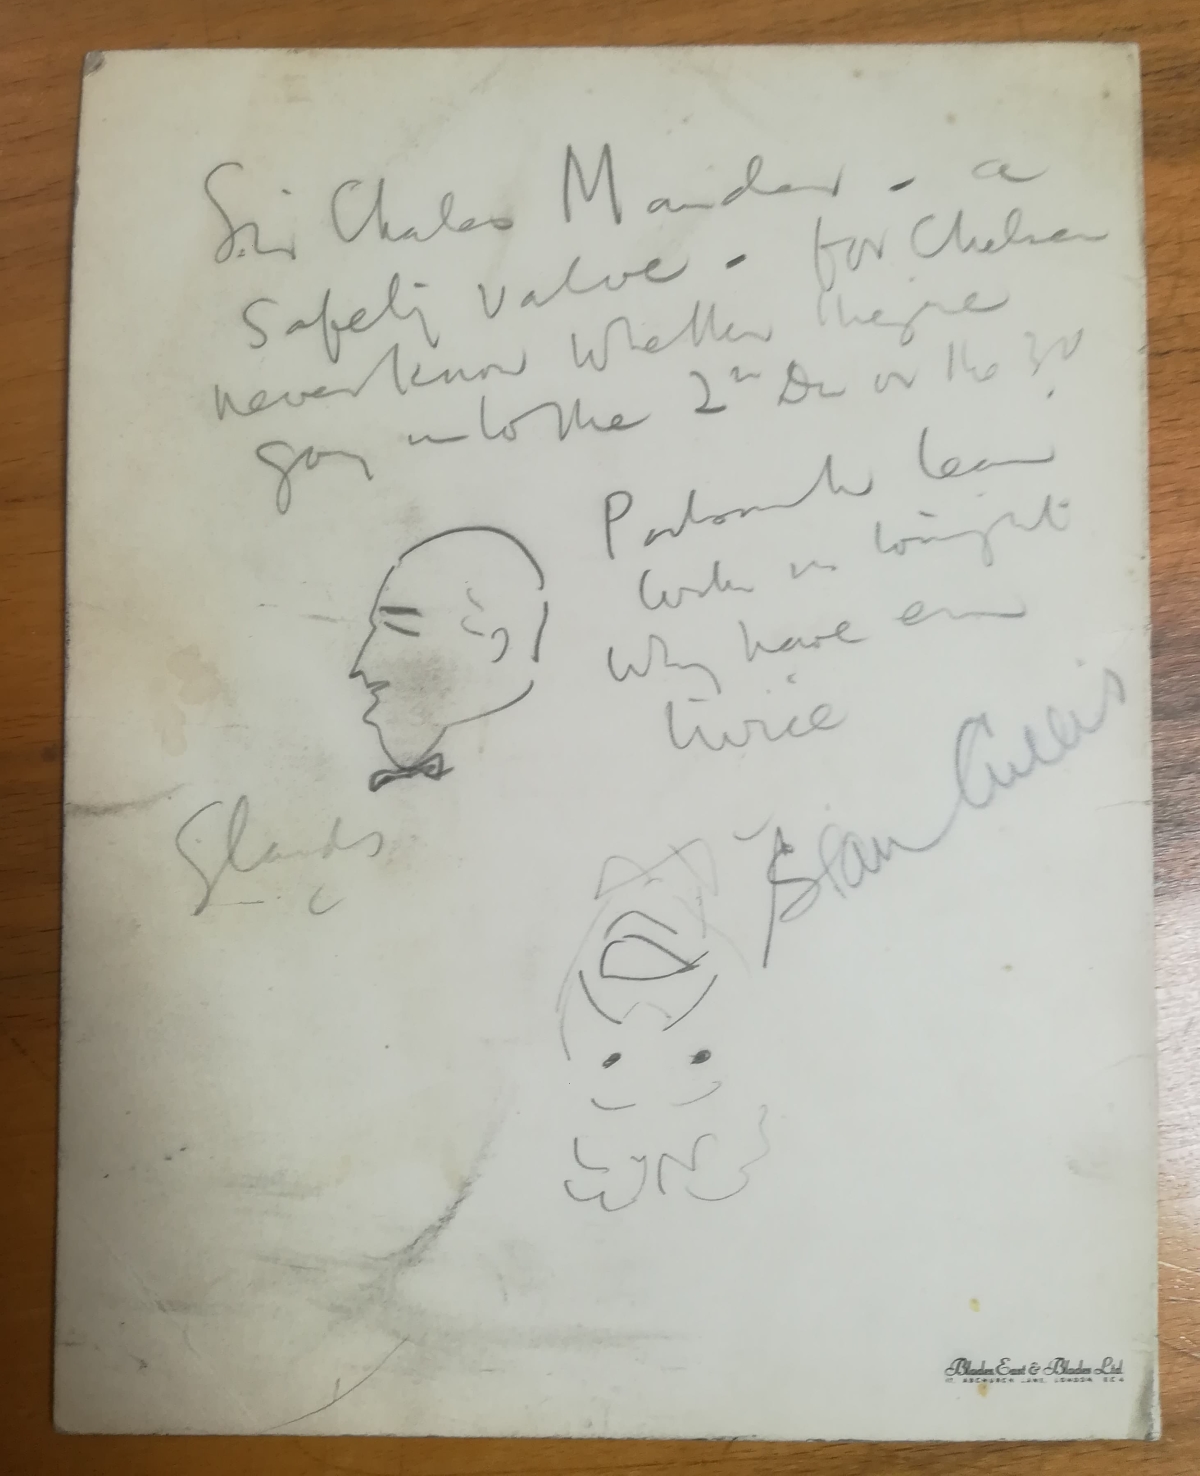 Sir Charles Mander - a
Safety Valve - for Chelsea
never know whether they're
going into the 2nd Div or the 3rd
Portsmouth team
with us tonight
Why have em
twice
Stan Cullis
Glands
Blades East & Blades Ltd
17, ABCHURCH LANE, LONDON EC4